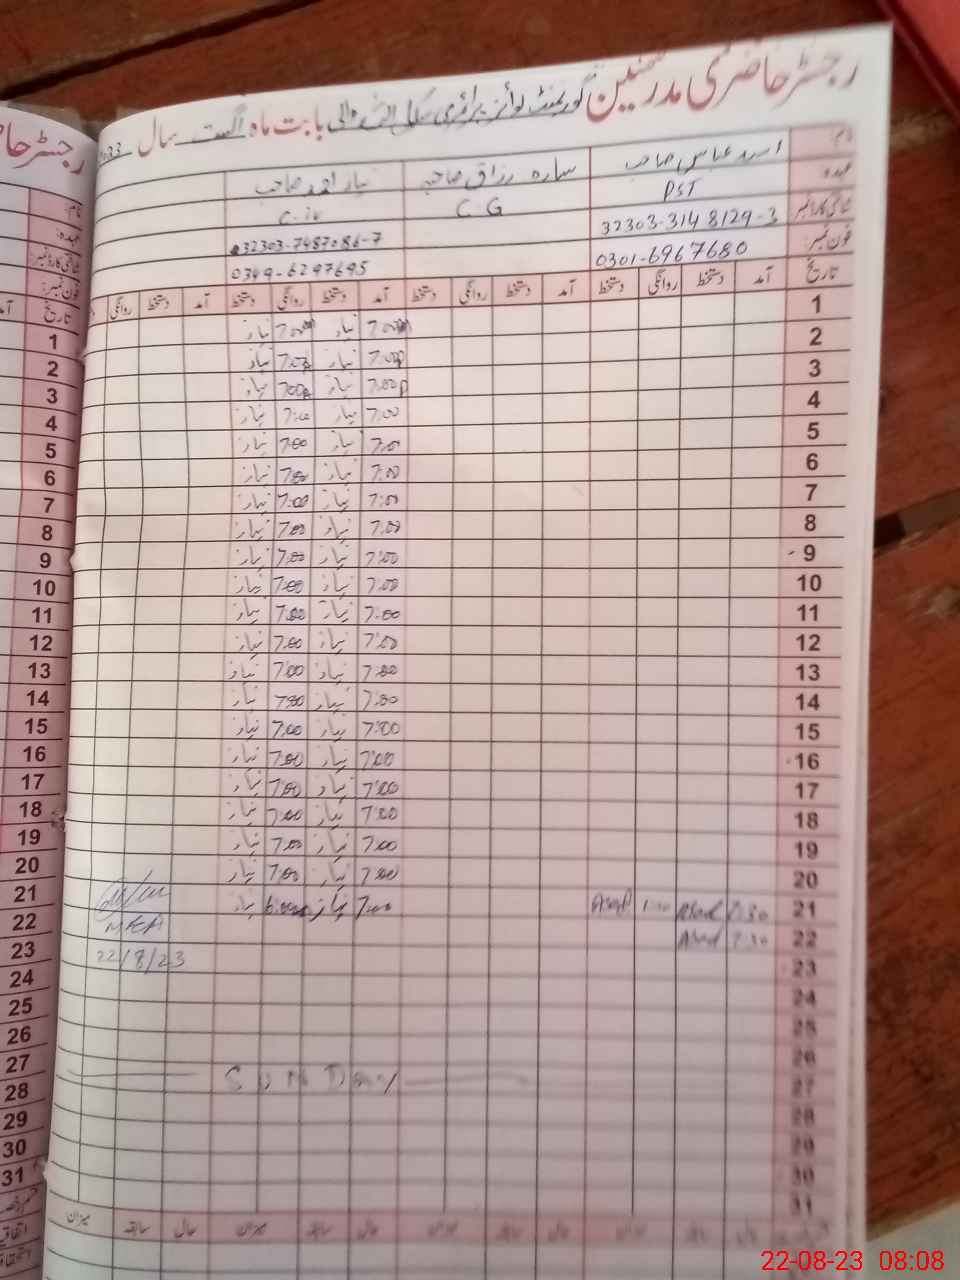 رجسٹر حاضری مدرسین گورنمنٹ بوائز پرائمری سکول والی بابت ماہ اگست سال
نام اسد عباس صاحب سارہ رزاق صاحبہ نیاز احمد صاحب
عہدہ PST C G C-iv
شناختی کارڈ نمبر 32303-3148129-3 32303-7487086-7
فون نمبر: 0301-6967680 0349-6297695
تاریخ آمد دستخط روانگی دستخط آمد دستخط روانگی دستخط آمد دستخط روانگی دستخط آمد دستخط روانگی
1 7:00 نیاز 7:00 نیاز
2 7:00 نیاز 7:00 نیاز
3 7:00 نیاز 7:00 نیاز
4 7:00 نیاز 7:00 نیاز
5 7:00 نیاز 7:00 نیاز
6 7:00 نیاز 7:00 نیاز
7 7:00 نیاز 7:00 نیاز
8 7:00 نیاز 7:00 نیاز
9 7:00 نیاز 7:00 نیاز
10 7:00 نیاز 7:00 نیاز
11 7:00 نیاز 7:00 نیاز
12 7:00 نیاز 7:00 نیاز
13 7:00 نیاز 7:00 نیاز
14 7:00 نیاز 7:00 نیاز
15 7:00 نیاز 7:00 نیاز
16 7:00 نیاز 7:00 نیاز
17 7:00 نیاز 7:00 نیاز
18 7:00 نیاز 7:00 نیاز
19 7:00 نیاز 7:00 نیاز
20 7:00 نیاز 7:00 نیاز
21 7:30 Asad 1:30 Asad 7:00 نیاز نیاز
22 7:30 Asad MEA
23 22/8/23
24
25
26
27 SUNDay
28
29
30
31
حال سابقہ میزان حال سابقہ میزان حال سابقہ میزان
رجسٹر حا
نام
عہدہ:
شناختی کارڈ نمبر:
فون نمبر:
تاریخ
1
2
3
4
5
6
7
8
9
10
11
12
13
14
15
16
17
18
19
20
21
22
23
24
25
26
27
28
29
30
31
22-08-23 08:08